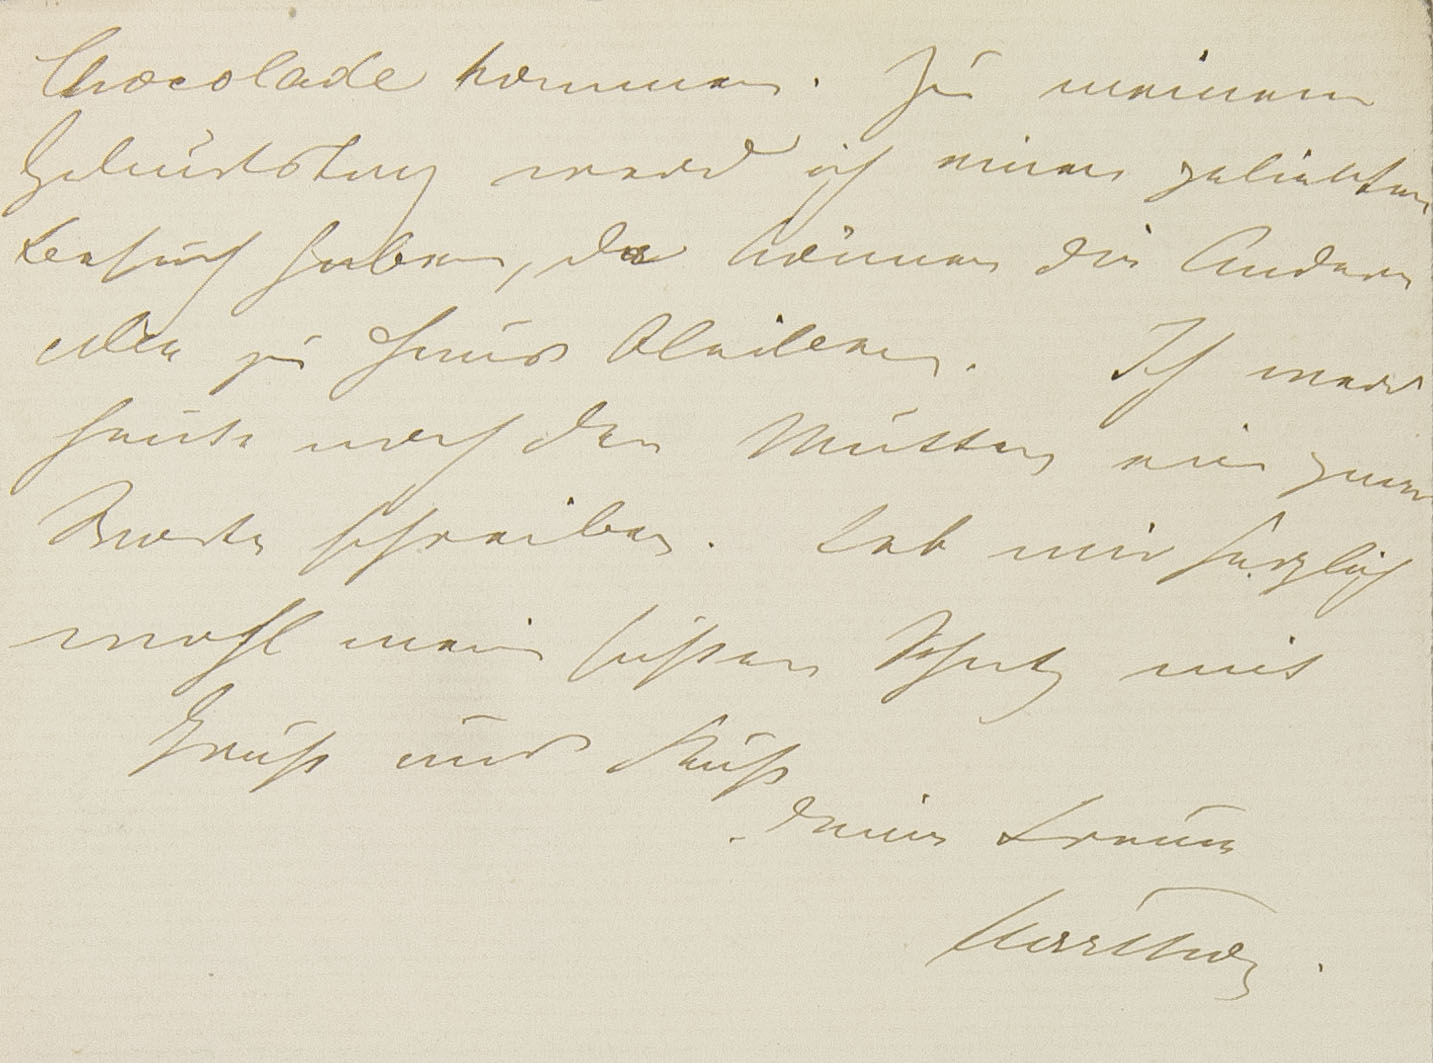 Chocolade kommen. Zu meinem
Geburtstag werd ich einen geliebten
Besuch haben, da können die Andern
alle zu Haus bleiben. Ich werd
heute noch der Mutter ein paar
Worte schreiben. Leb mir herzlich
wohl mein süßer Schatz mit
Gruß und Kuß
Deine treue